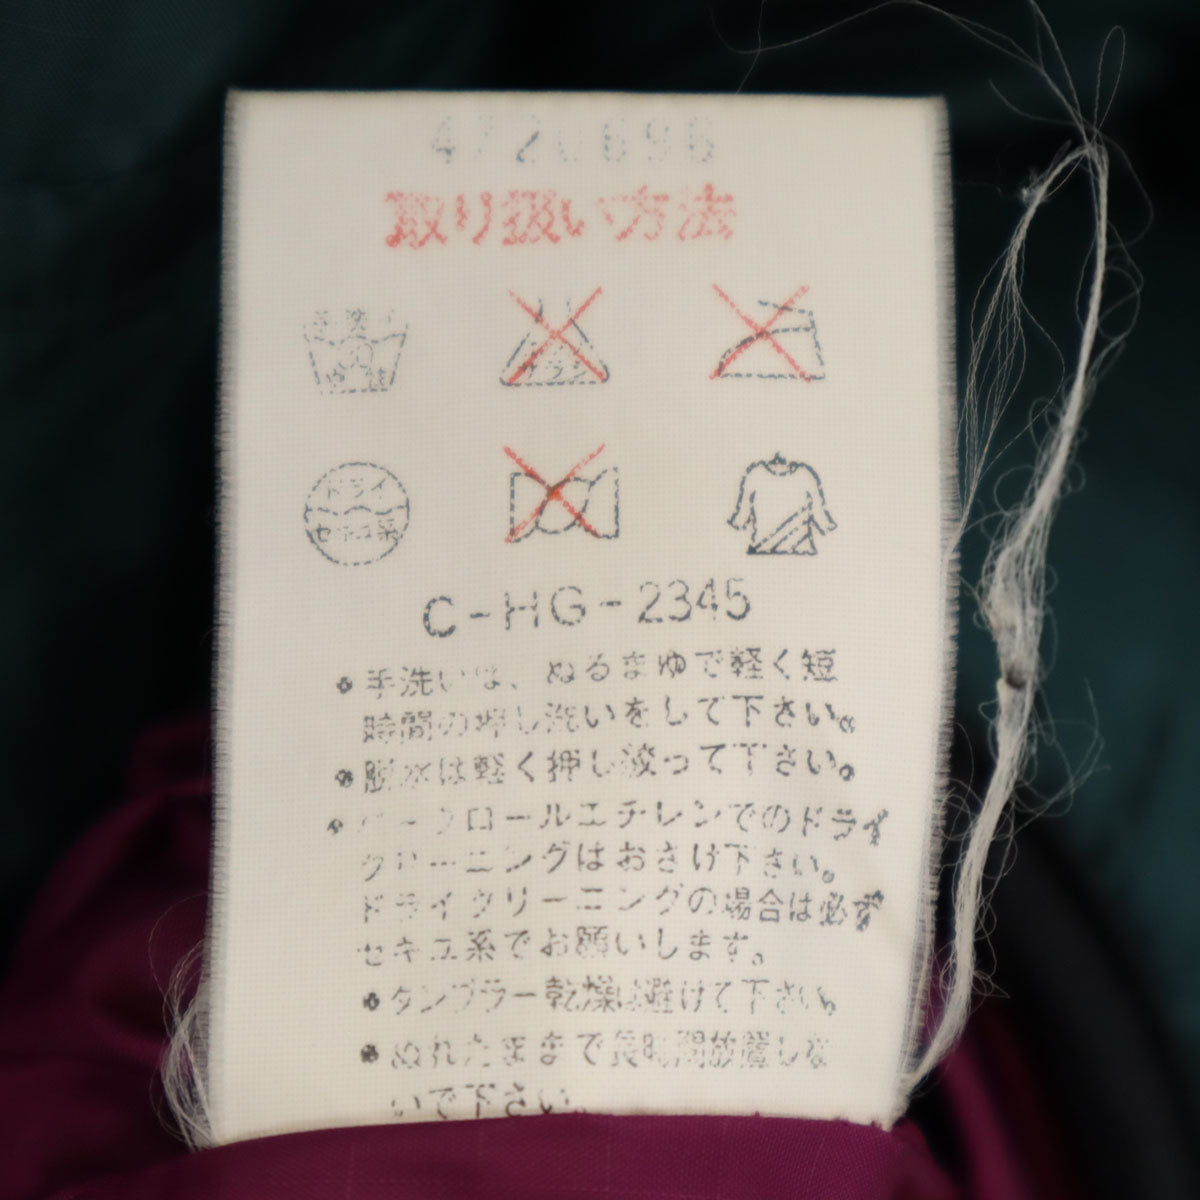 4720696
取り扱い方法
手洗イ
中性
サラシ
ドライ
セキユ系
C-HG-2345
●手洗いは、ぬるまゆで軽く短
時間の押し洗いをして下さい。
●脱水は軽く押し絞って下さい。
●パークロールエチレンでのドライ
クリーニングはおさけ下さい。
ドライクリーニングの場合は必ず
セキユ系でお願いします。
●タンブラー乾燥は避けて下さい。
●ぬれたままで長時間放置しな
いで下さい。